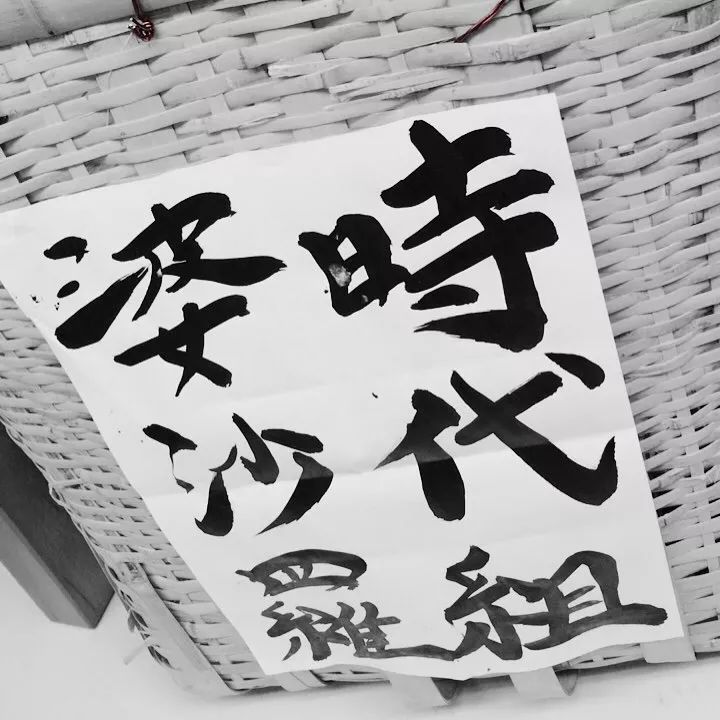 時代組
婆沙羅